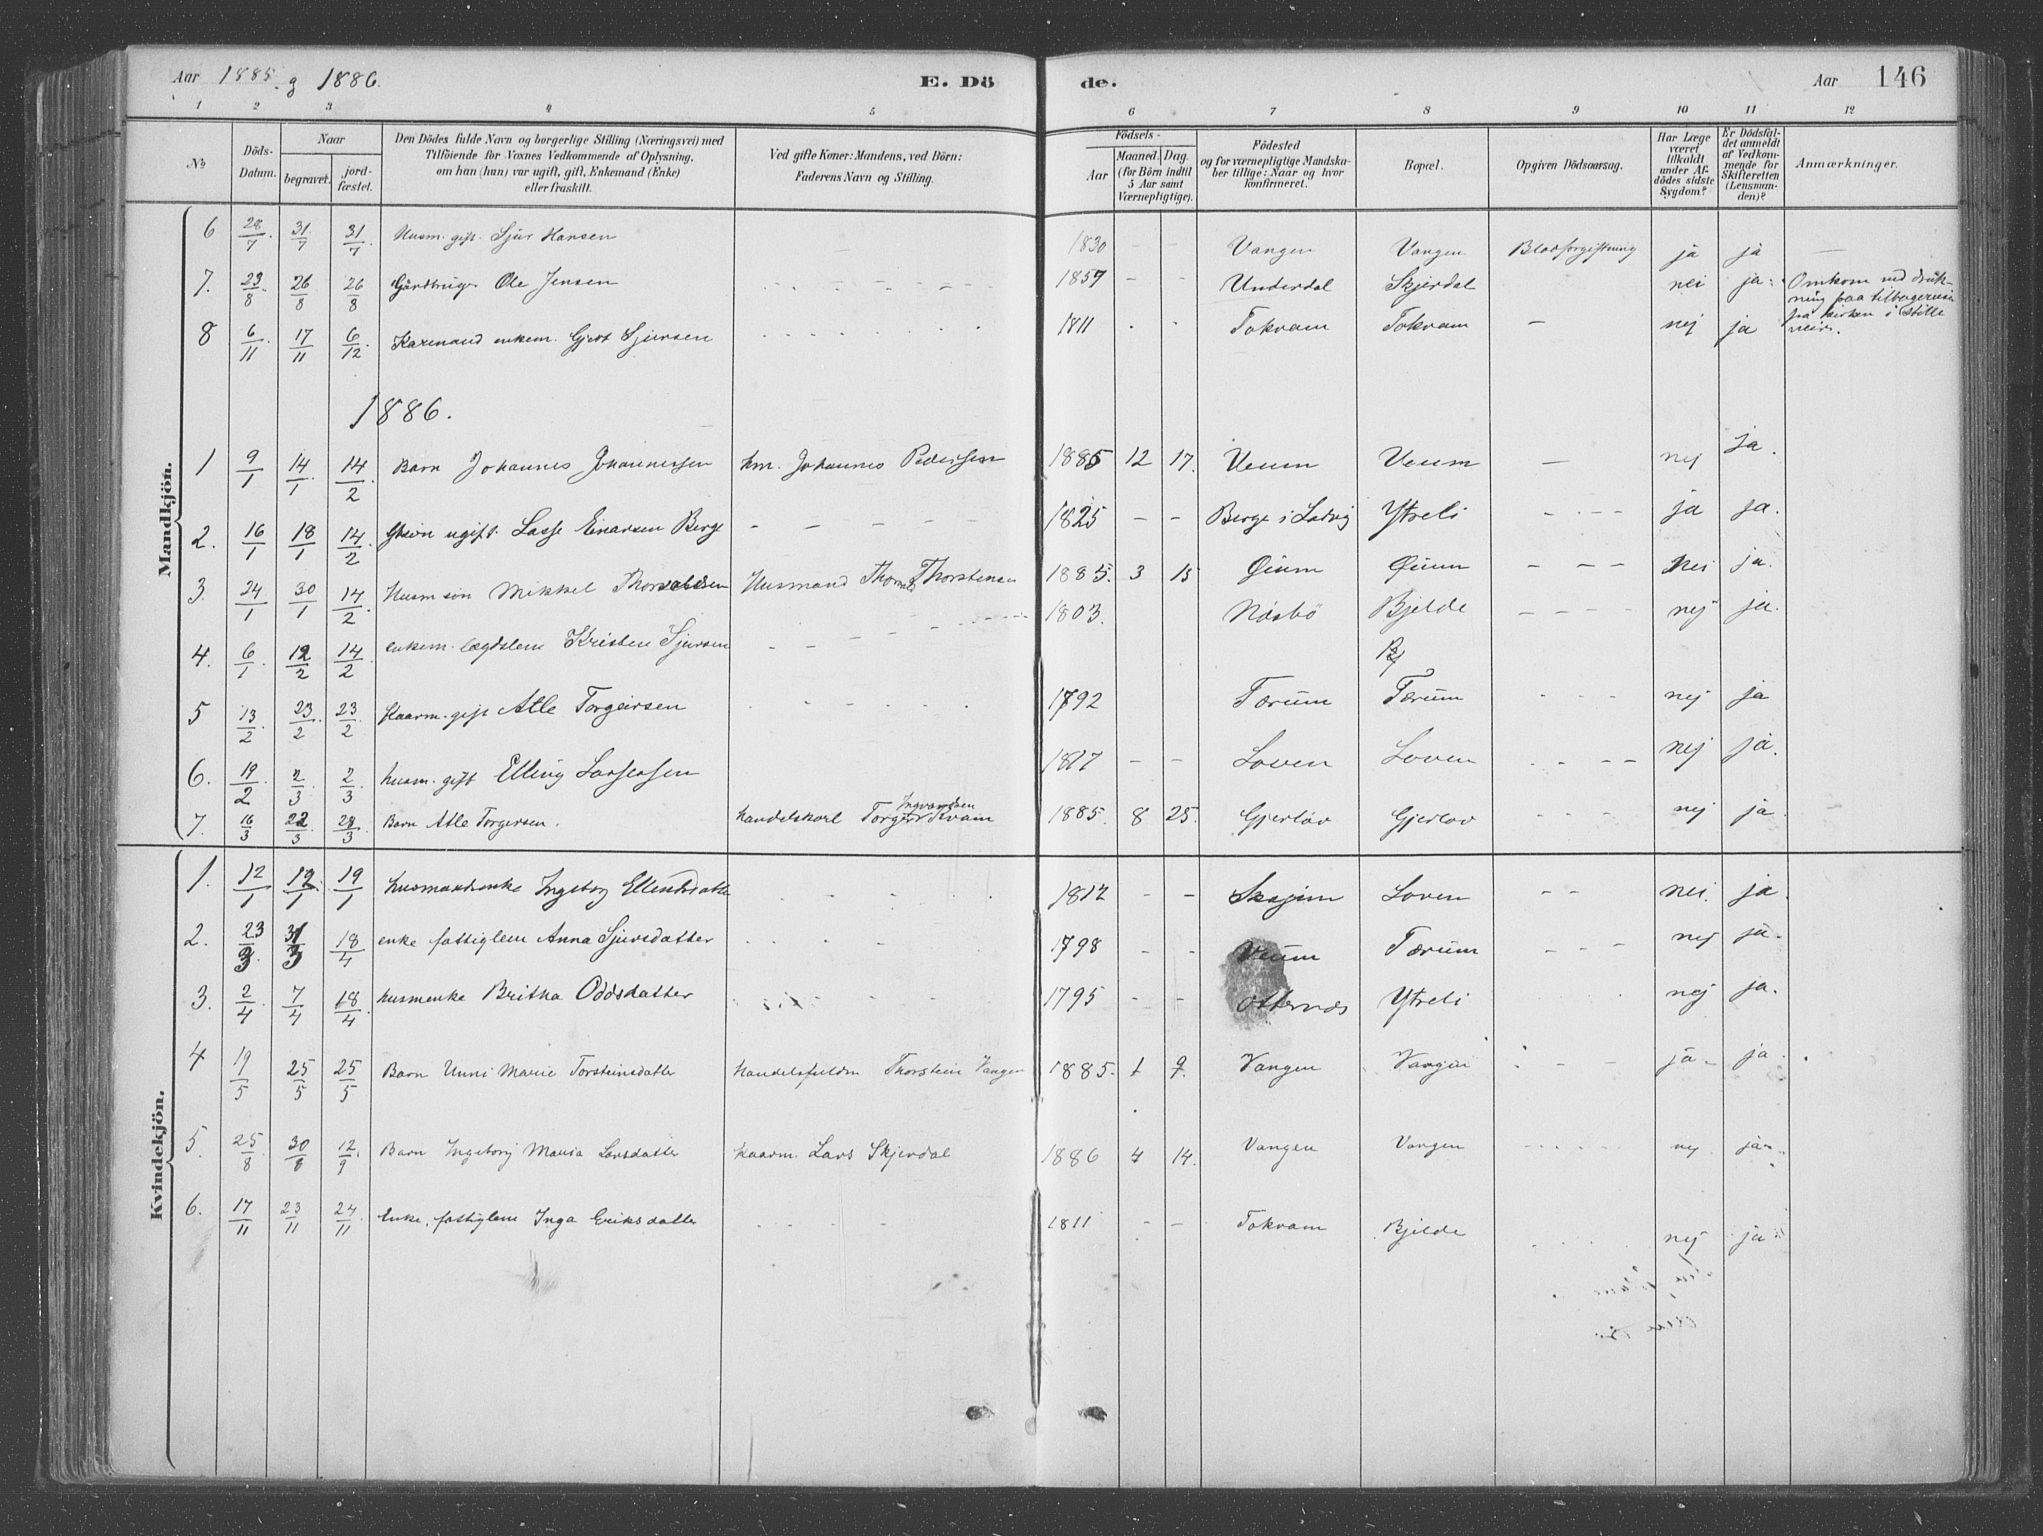 Aar 1885 g 1886. E. Dö de. Aar 146
1 2 3 4 5 6 7 8 9 10 11 12
No
Döds-
Datum.
Naar
begravet.
jord-
fæstet.
Den Dödes fulde Navn og borgerlige Stilling (Næringsvei) med
Tilföiende for Voxnes Vedkommende af Oplysning,
om han (hun) var ugift, gift, Enkemand (Enke)
eller fraskilt.
Ved gifte Koner: Mandens, ved Börn:
Faderens Navn og Stilling.
Födsels-
Aar
Maaned. Dag.
(for Börn indtil
5 Aar samt
Værnepligtige).
Födested
og for værnepligtige Mandska-
ber tillige: Naar og hvor
konfirmeret.
Bopæl.
Opgiven Dödsaarsag.
Har Læge
været
tilkaldt
under Af-
dödes sidste
Sygdom?
Er Dödsfal-
det anmeldt
af Vedkom-
mende for
Skifteretten
(Lensman-
den)?
Anmærkninger.
Mandkjön.
6 28/7 31/7 31/7 Husm. gift. Sjur Hansen 1830 - - Vangen Vangen Blodforgiftning ja ja -
7. 23/8 26/8 26/8 Gårdbruger Ole Jensen 1857 - - Underdal Skjerdal nei ja. Omkom ved druk-
ning paa tilbagereisen
fra kirken i stille
veir.
8 6/11 17/11 6/12 enkem. Gjert Sjursen 1811 Tokvam Tokvam - nej ja
1886.
1 9/1 14/1 14/2 Barn Johannes Johannessen hm. Johannes Pedersen 1885 12 17. Veum Veum - nej ja.
2. 16/1 18/1 14/2 ugift. Lasse Einarsen Berge - - - - 1825 - - Berge i Ladvig Ytreli - - - ja ja.
3. 24/1 30/1 14/2 Husm søn Mikkel Thorvaldsen Husmand Thorvald Thorstensen 1885. 3 15 Øium Øium - - - Nei ja.
4. 6/1 12/2 14/2 enkem. lægdslem Kristen Sjursen 1803. Næsbø Bjelde - - - nej ja.
5 13/2 23/2 23/2 kaarm. gift Atle Torgeirsen 1792 Tærum Tærum nej ja
6. 19/2 2/3 2/3 husm. gift Elling Lassesen 1817 - - Loven Loven nej ja.
7. 16/3 22/3 28/3 Barn Atle Torgersen. handelskarl Torger Ingvardsen Kvam 1885. 8 25. Gjerløv Gjerløv nej ja.
Kvindekjön.
1. 12/1 19/1 19/1 husmandsenke Ingeborg Ellendsdatter 1812 - - Skajem Loven - - nei. ja
2. 23/3 31/3 18/4 enke fattiglem Anna Sjursdatter 1798 - - Veum Tærum nej ja.
3. 2/4 7/4 18/4 husmenke Britha Oddsdatter 1795 - - Otternæs Ytreli nej ja.
4 19/5 25/5 25/5 Barn Unni Marie Torsteinsdatter Thorstein Vangen 1885. 1 9. Vangen Vangen ja - ja.
5. 25/8 30/8 12/9 Barn Ingeborg Maria Larsdatter kaarm. Lars Skjerdal 1886 4 14. Vangen Vangen nej ja
6. 17/11 23/11 24/11 Enke, fattiglem Inga Eriksdatter 1811 - - Tokvam Bjelde nej ja